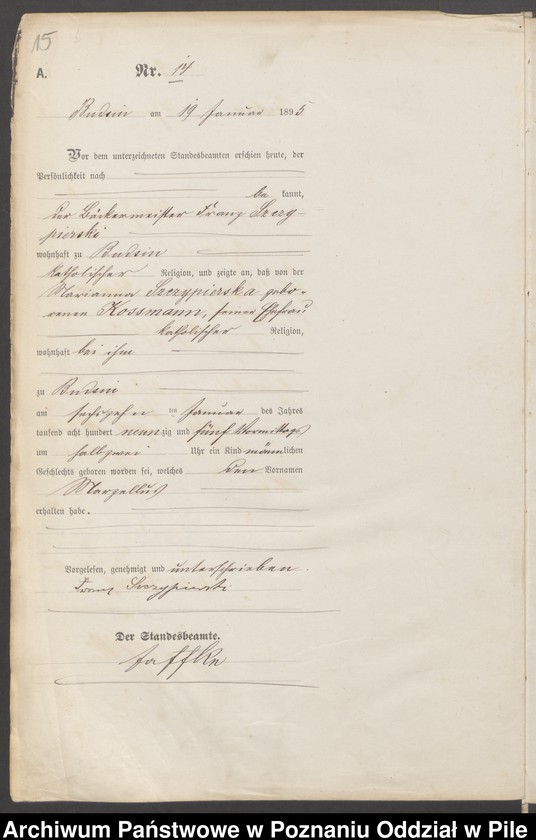 15
A.
Nr. 14
Budsin am 19 Januar 1895
Vor dem unterzeichneten Standesbeamten erschien heute, der
Persönlichkeit nach
be kannt,
der Bäckermeister Franz Szczy-
pierski
wohnhaft zu Budsin
katholischer Religion, und zeigte an, daß von der
Marianna Szczypierska gebo-
renen Kossmann, seiner Ehefrau
katholischer Religion,
wohnhaft bei ihm
zu Budsin
am sechszehn ten Januar des Jahres
tausend acht hundert neunzig und fünf Vormittags
um halb zwei Uhr ein Kind männlichen
Geschlechts geboren worden sei, welches den Vornamen
Marzellus
erhalten habe.
Vorgelesen, genehmigt und unterschrieben.
Franz Szczypierski
Der Standesbeamte.
Jaffke
Archiwum Państwowe w Poznaniu Oddział w Pile